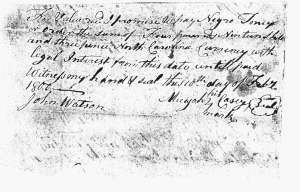 For Value rec'd I promise to pay Negro Toney
or order the sum of Four pounds Nineteen Shills
and three pence North Carolina Currency with
legal Interest from this date until paid
Witness my hand & seal this 10th day of Feby
180
John Watson Micajah his Casey Seal
mark